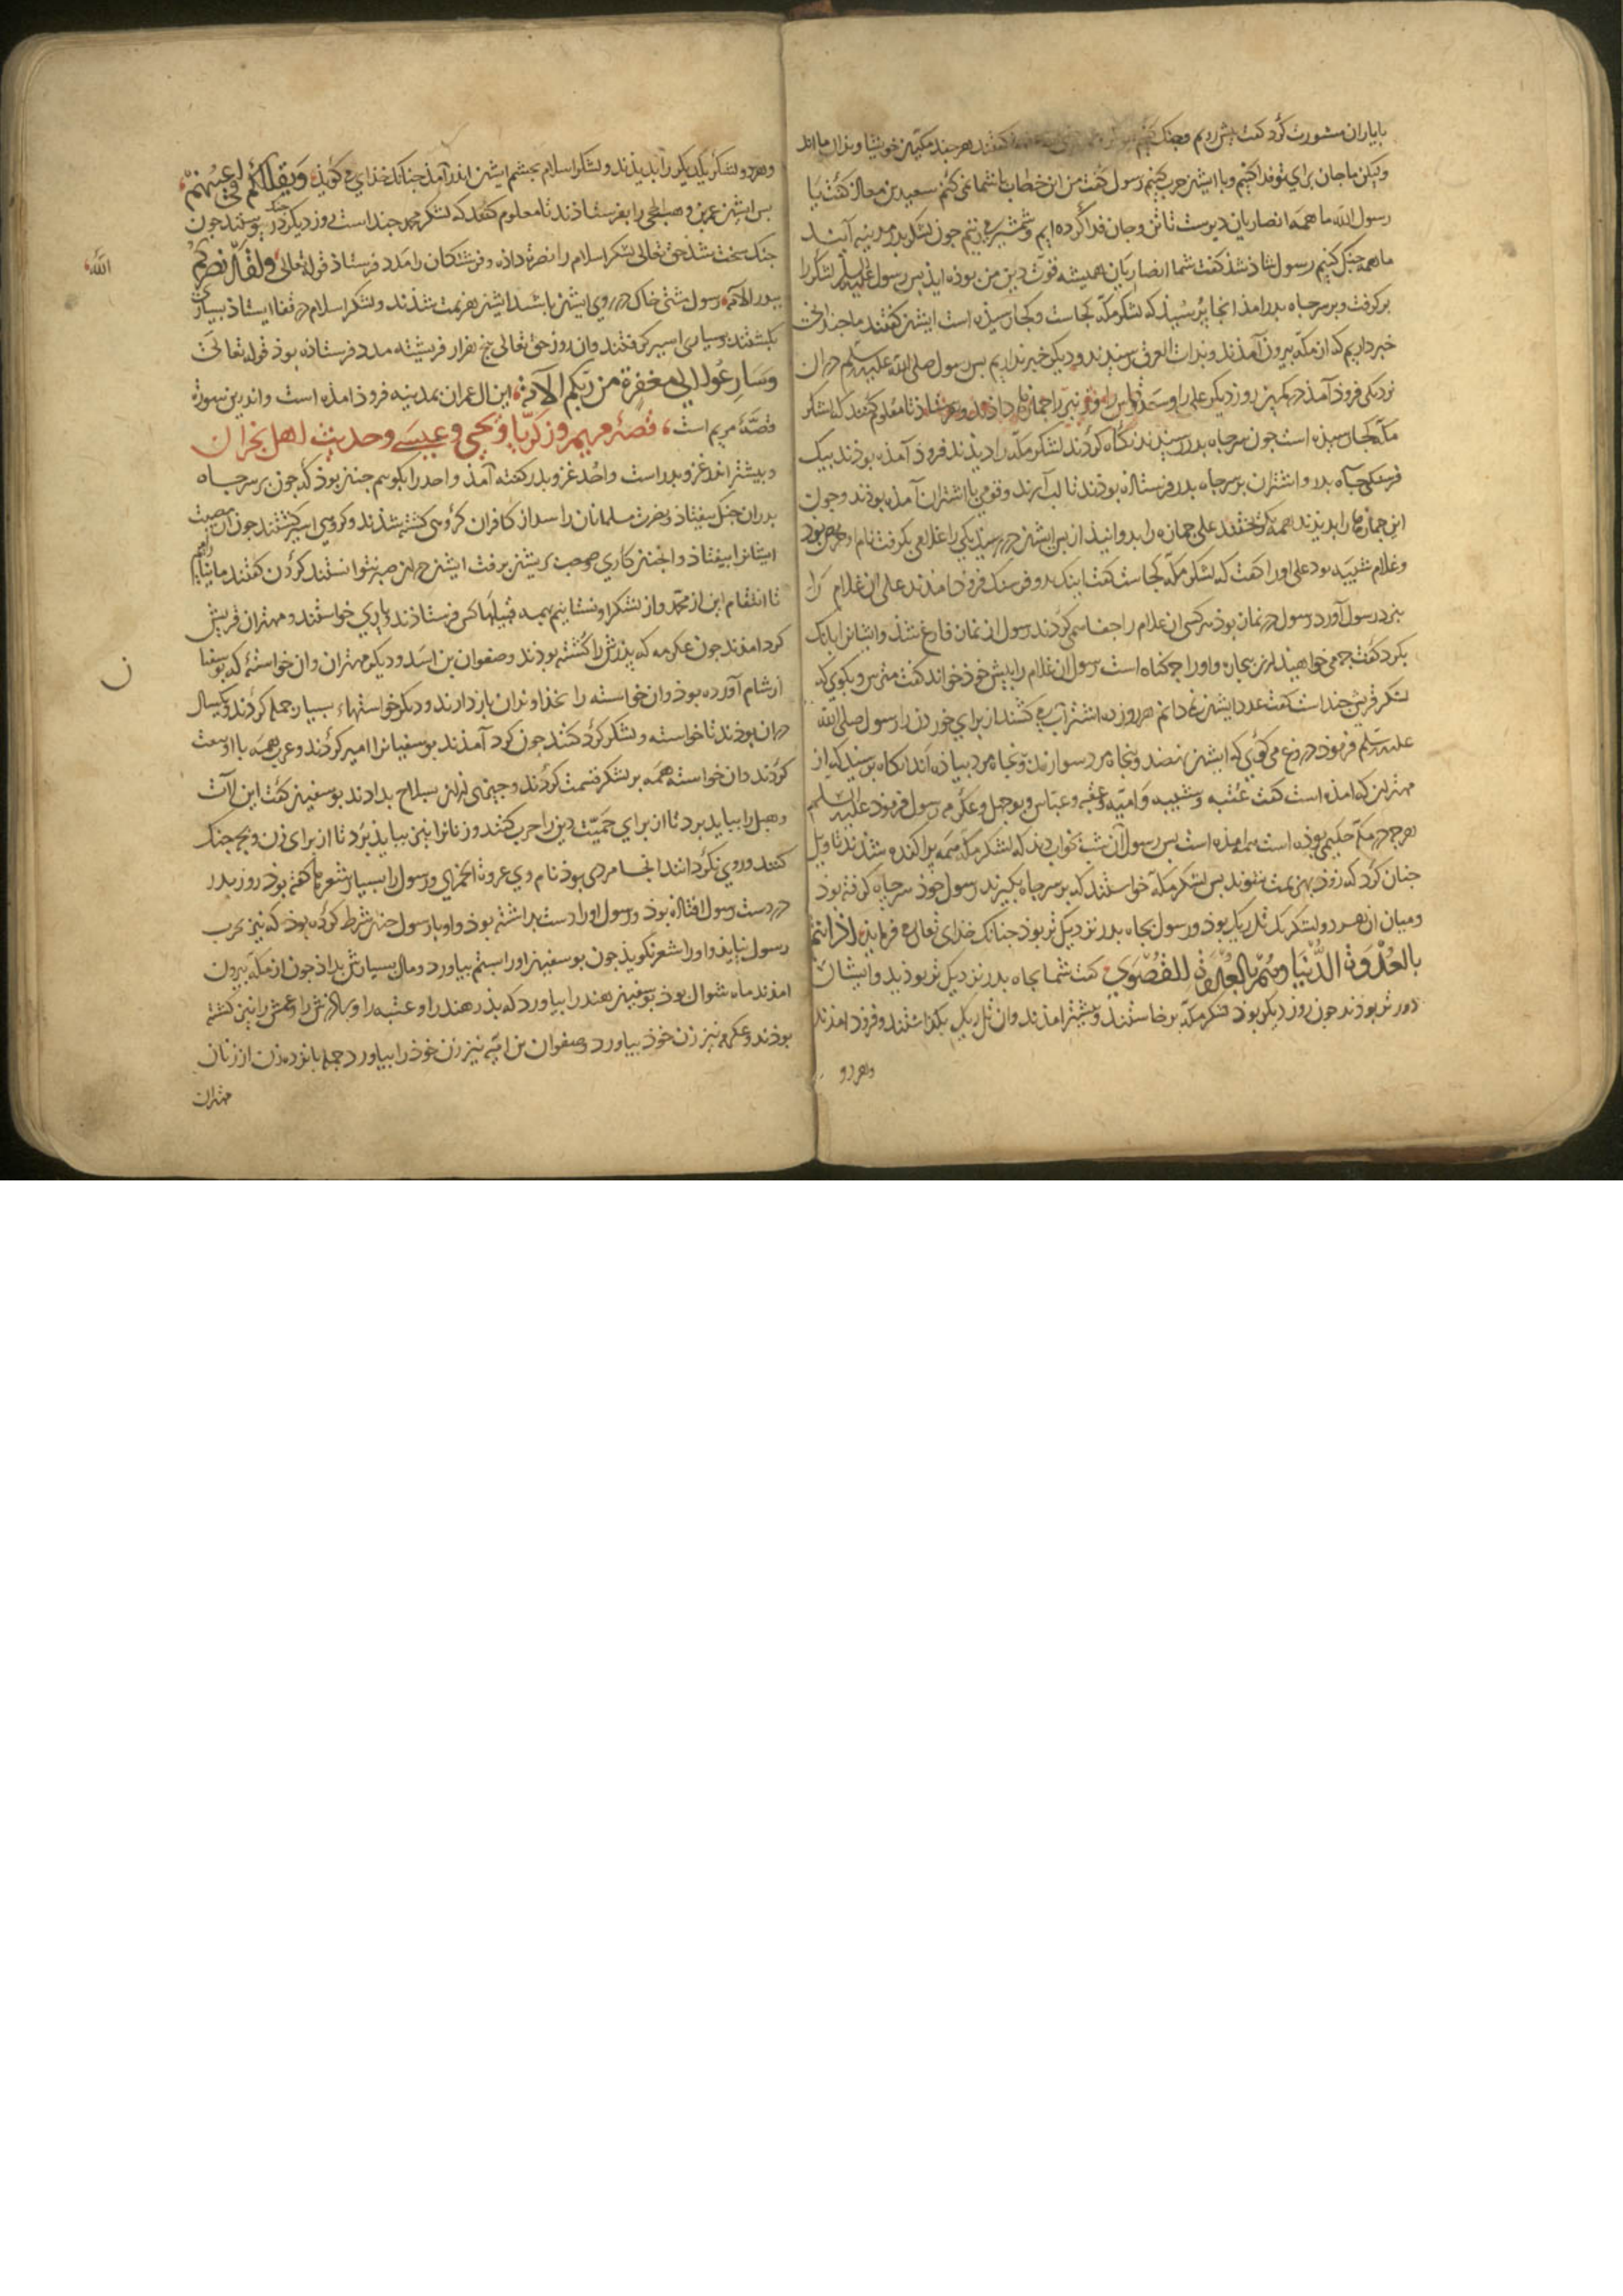 با یاران مشورت کرد کفت بیش رویم وجنک کنیم کفتند هرجند مکیین خویشاوندان مااند
ولیکن ما جان برای تو فدا کنیم وبا ایشین حرب کنیم رسول کفت من این خطاب با شما نمی کنم سعید بن معاذ کفت یا
رسول الله ما همه انصاریان دیرست تا تن وجان فدا کرده ایم وشمشیر می زنیم جون لشکر بدر مدینه آیند
ما همه جنک کنیم رسول شاذ شذ کفت شما انصاریان همیشه قوت دین من بوده ایذ بس رسول علیه السلم لشکر را
برکرفت وبر سر جاه بدر امذ انجا پرسیذ که لشکر مکه کجاست وکجا رسیذه است ایشین کفتند ما جندانی
خبر داریم که از مکه بیرون آمذند وبذات العرق رسیذند ودیکر خبر نداریم بس رسول صلی الله علیه وسلم دران
نزدیکی فروذ آمذ دیکر روز علی را وسعد وقاس را وزبیر را جمازه داذ وبفرستاذ تا معلوم کنند که لشکر
مکه کجا رسیذه است جون سر جاه بدر رسیذند نکاه کردند لشکر مکه را دیذند فروذ آمذه بوذند بیک
فرسنکی جاه بدر واشتران بر سر جاه بدر فرستاذه بوذند تا آب برند وقومی با اشتران آمذه بوذند وجون
این جمازها را بدیذند همه بکریختند علی جمازه را بدوانیذ از بس ایشین در رسیذ یکی را غلامی بکرفت نام او بوذ
وغلام شیبه بود علی اورا کفت که لشکر مکه کجاست کفت اینک بدو فرسنک فروذ امذند علی ان غلام را
بنزد رسول آورد رسول در نماز بوذ هر کسی ان غلام را جفا می کردند رسول از نماز فارغ شذ وایشانرا بانک
بکرد کفت جه می خواهیذ ازین بیجاره واورا جه کناه است رسول ان غلام را بیش خوذ خواند کفت مترس وبکوی که
لشکر قریش جنداست کفت عدد ایشین نمی دانم هر روز ده اشتر آب می کشند از برای خوردن را رسول صلی الله
علیه وسلم فرموذ دروغ می کوئی که ایشین نهصد وپنجاه مرد سوارند وپنجاه مرد بیاذه اند انکاه برسیذ که از
مهتران که امذه است کفت عتبه وشیبه وامیه وعقبه وعباس وبوجهل وعکرمه رسول فرموذ علیه السلم
هرجه در مکه حکیمی بوذه است همه امذه است بس رسول آن شب بخواب دیذ که لشکر مکه همه پراکنده شذند تاویل
جنان کرد که زوذ بهزیمت شوند بس لشکر مکه خواستند که بر سر جاه بکیرند رسول خوذ سر جاه کرفته بوذ
ومیان ان هر دو لشکر یک تل ریک بوذ ورسول بجاه بدر نزدیک تر بوذ جنانک خدای تعالی می فرمایذ اذ انتم
بالعدوة الدنیا وهم بالعدوة القصوی کفت شما بجاه بدر نزدیک تر بوذید وایشان
دور تر بوذند جون روز دیکر بوذ لشکر مکه برخاستند وبیشتر امذند وان تل ریک بکذاشتند وفروذ امذند
وهر دو
وهر دو لشکر یکدیکر را بدیذند ولشکر اسلام بجشم ایشین اندک آمذ جنانک خذای می کویذ ویقللکم فی اعینهم
بس ایشین عمر بن وهب الجمحی را بفرستاذند تا معلوم کند که لشکر محمد جند است روز دیکر در جنک پیوستند جون
جنک سخت شذ حق تعالی لشکر اسلام را نصرة داذه وفرشتکان را مدد فرستاذ قوله تعالی ولقد نصرکم
الله
ببدر الآیه رسول مشتی خاک در روی ایشین باشید ایشین هزیمت شذند ولشکر اسلام در قفا ایستاذ بسیاری
بکشتند وبسیاری اسیر کرفتند وان روز حق تعالی بنج هزار فریشته مدد فرستاذه بوذ قوله تعالی
وسارعوا الی مغفرة من ربکم الآیه این ال عمران بمدینه فروذ امذه است واندرین سورة
قصه مریم است قصه مریم وزکریا ویحیی وعیسی وحدیث اهل نجران
وبیشتر اندر غزو بدر است واحد غزو بدر کفته آمذ واحد را بکویم جنین بوذ که جون بر سر جاه
بدر ان جنک بیفتاذ ونصرت مسلمانان را بوذ از کافران کروهی کشته شذند وکروهی اسیر کشتند جون آن مصیبت
ایشانرا بیفتاذ وانجنین کاری صعب بریشین برفت ایشین در ان صبر نتوانستند کردن کفتند ما نیارامیم
تا انتقام این از محمد واز لشکر او نستانیم بهمه قبیلها کس فرستاذند ویاری خواستند ومهتران قریش
کرد امذند جون عکرمه که بذرش را کشته بوذند وصفوان بن اسد ودیکر مهتران وان خواسته که بوسفیان
از شام آورده بوذ وان خواسته را بخذاوندان باز دارند ودیکر خواستهاء بسیار جمله کردند ویکسال
دران بوذند تا خواسته ولشکر کرد کنند جون کرد آمذند بوسفیانرا امیر کردند وعرب همه با او بیعت
کردند وان خواسته همه بر لشکر قسمت کردند وجیزی ازین بسلاح بدادند بوسفین کفت این لات
وهبل را بباید برد تا از برای حمیت دین را حرب کنند وزنانرا نیز ببایذ برد تا از برای زن وبجه جنک
کنند وروی نکردانند انجا مردی بوذ نام وی عروة الجمحی ورسول را بسیار شعرها کفته بوذ روز بدر
در دست رسول افتاذه بوذ ورسول اورا دست بداشته بوذ واو با رسول جنین شرط کرده بوذ که نیز بحرب
رسول نیایذ واورا شعر نکویذ جون بوسفین اورا بستم بیاورد ومال بسیارش بداذ جون از مکه بیرون
امذند ماه شوال بوذ بوسفین هند را بیاورد که بذر هند را وعتبه را وبرادرش را وعمش را نیز کشته
بوذند وعکرمه نیز زن خوذ بیاورد وصفوان بن امیه نیز زن خوذ را بیاورد جمله پانزده زن از زنان
مهتران
ن